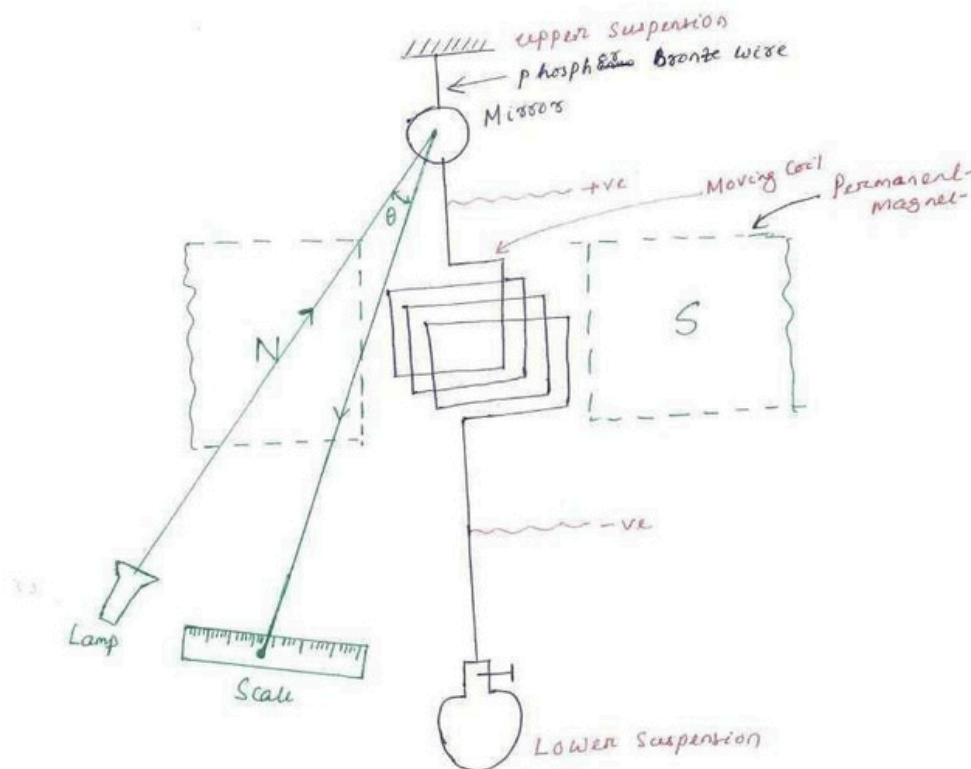 upper suspension
phospher Bronze wire
Mirror
+ve
Moving Coil
Permanent-
magnet-
θ
N
S
-ve
Lamp
Scale
Lower Suspension